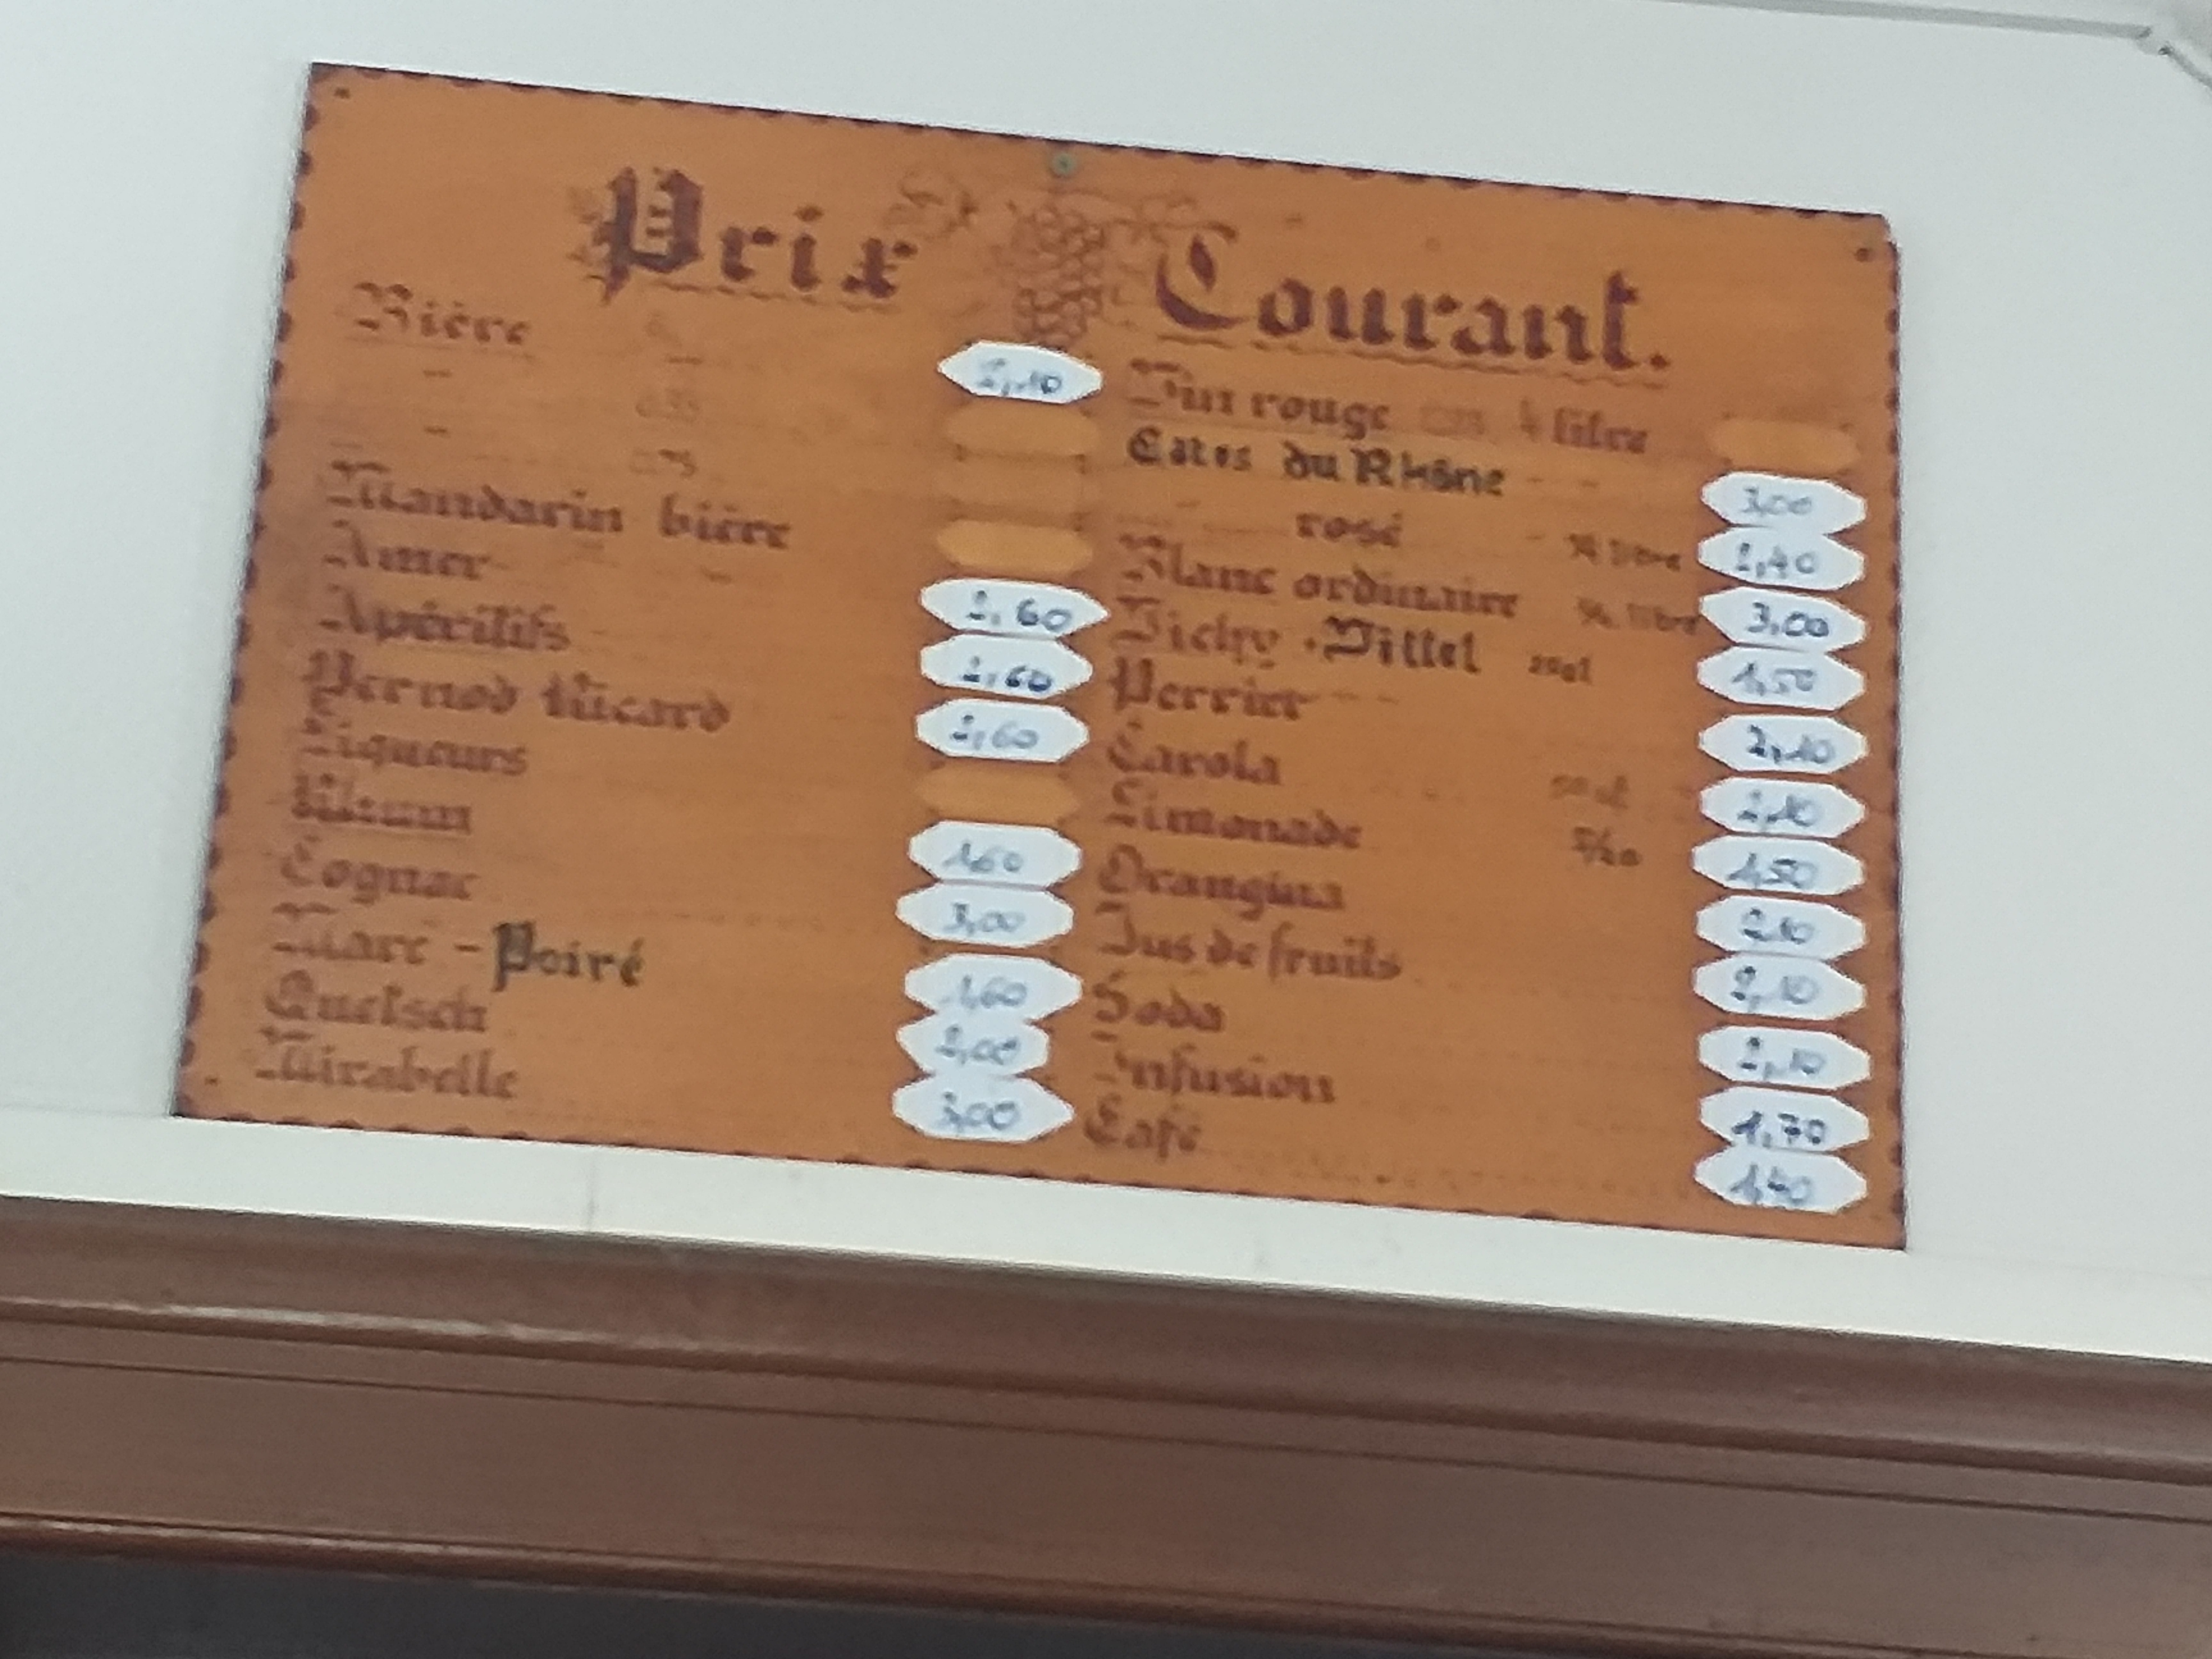 Prix Courant.
Bière 2,10
" 0.33
" 0.75
Mandarin bière
Amer 2,60
Apéritifs 2,60
Pernod Ricard 2,60
Liqueurs
Rhum 1,60
Cognac 3,00
Marc - Poiré 1,60
Quetsch 2,00
Mirabelle 3,00
Vin rouge litre
Cotes du Rhône 3,00
rosé ¼ litre 2,40
Blanc ordinaire ¼ litre 3,00
Vichy + Vittel 1,50
Perrier 2,10
Carola 2,10
Limonade 1,50
Orangina 2,10
Jus de fruits 2,10
Soda 2,10
Infusion 1,70
Café 1,40